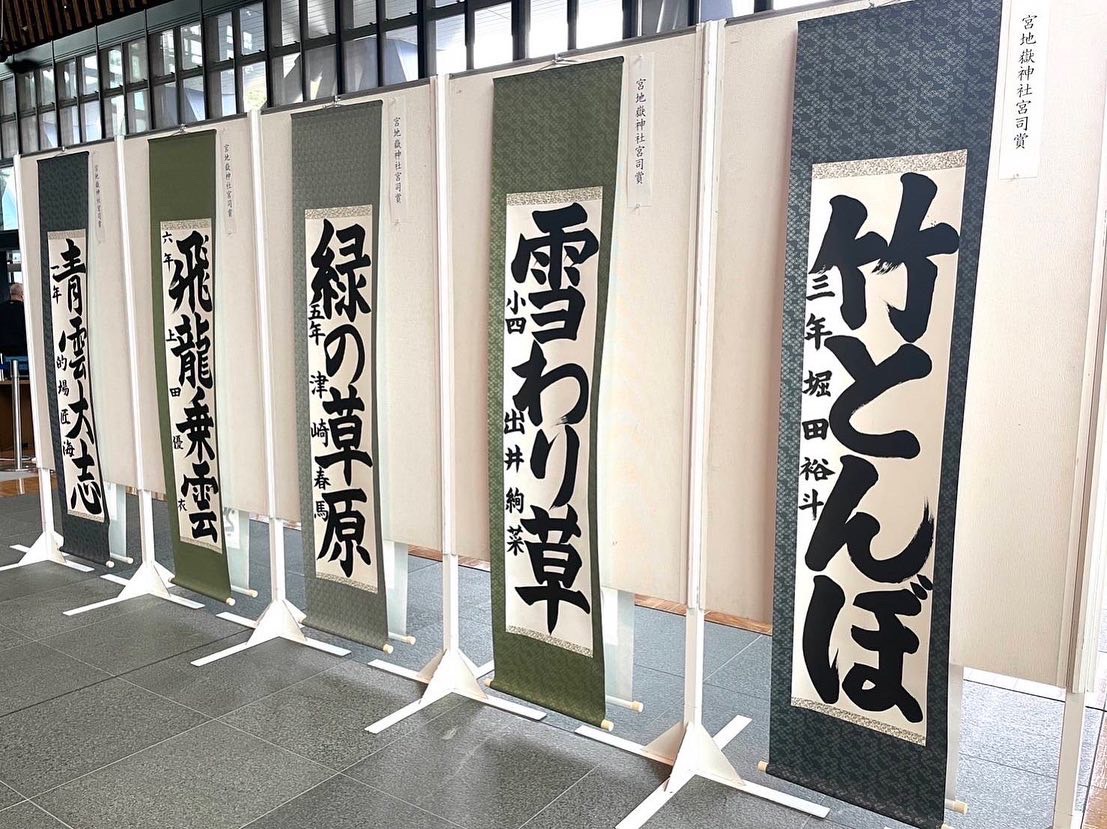 宮地嶽神社宮司賞
竹とんぼ
三年 堀田裕斗
宮地嶽神社宮司賞
雪わり草
小四 出井絢菜
宮地嶽神社宮司賞
緑の草原
五年 津崎春馬
宮地嶽神社宮司賞
飛龍乗雲
六年 上田優衣
宮地嶽神社宮司賞
青雲大志
二年 的場匠海